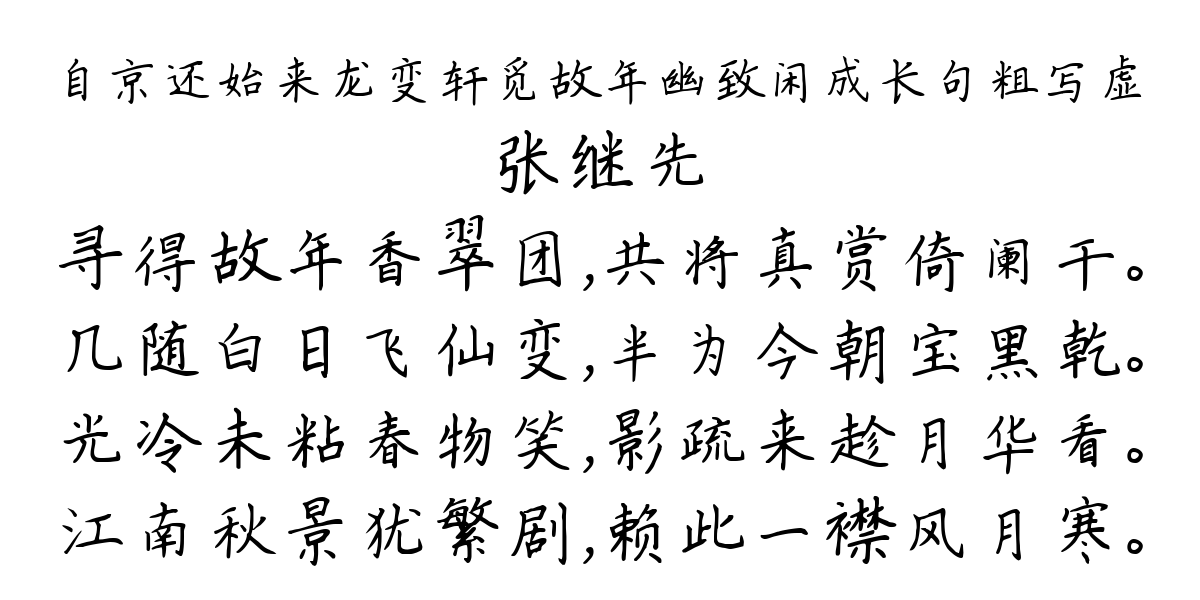 自京还始来龙变轩觅故年幽致闲成长句粗写虚
张继先
寻得故年香翠团,共将真赏倚阑干。
几随白日飞仙变,半为今朝宝黑乾。
光冷未粘春物笑,影疏来趁月华看。
江南秋景犹繁剧,赖此一襟风月寒。